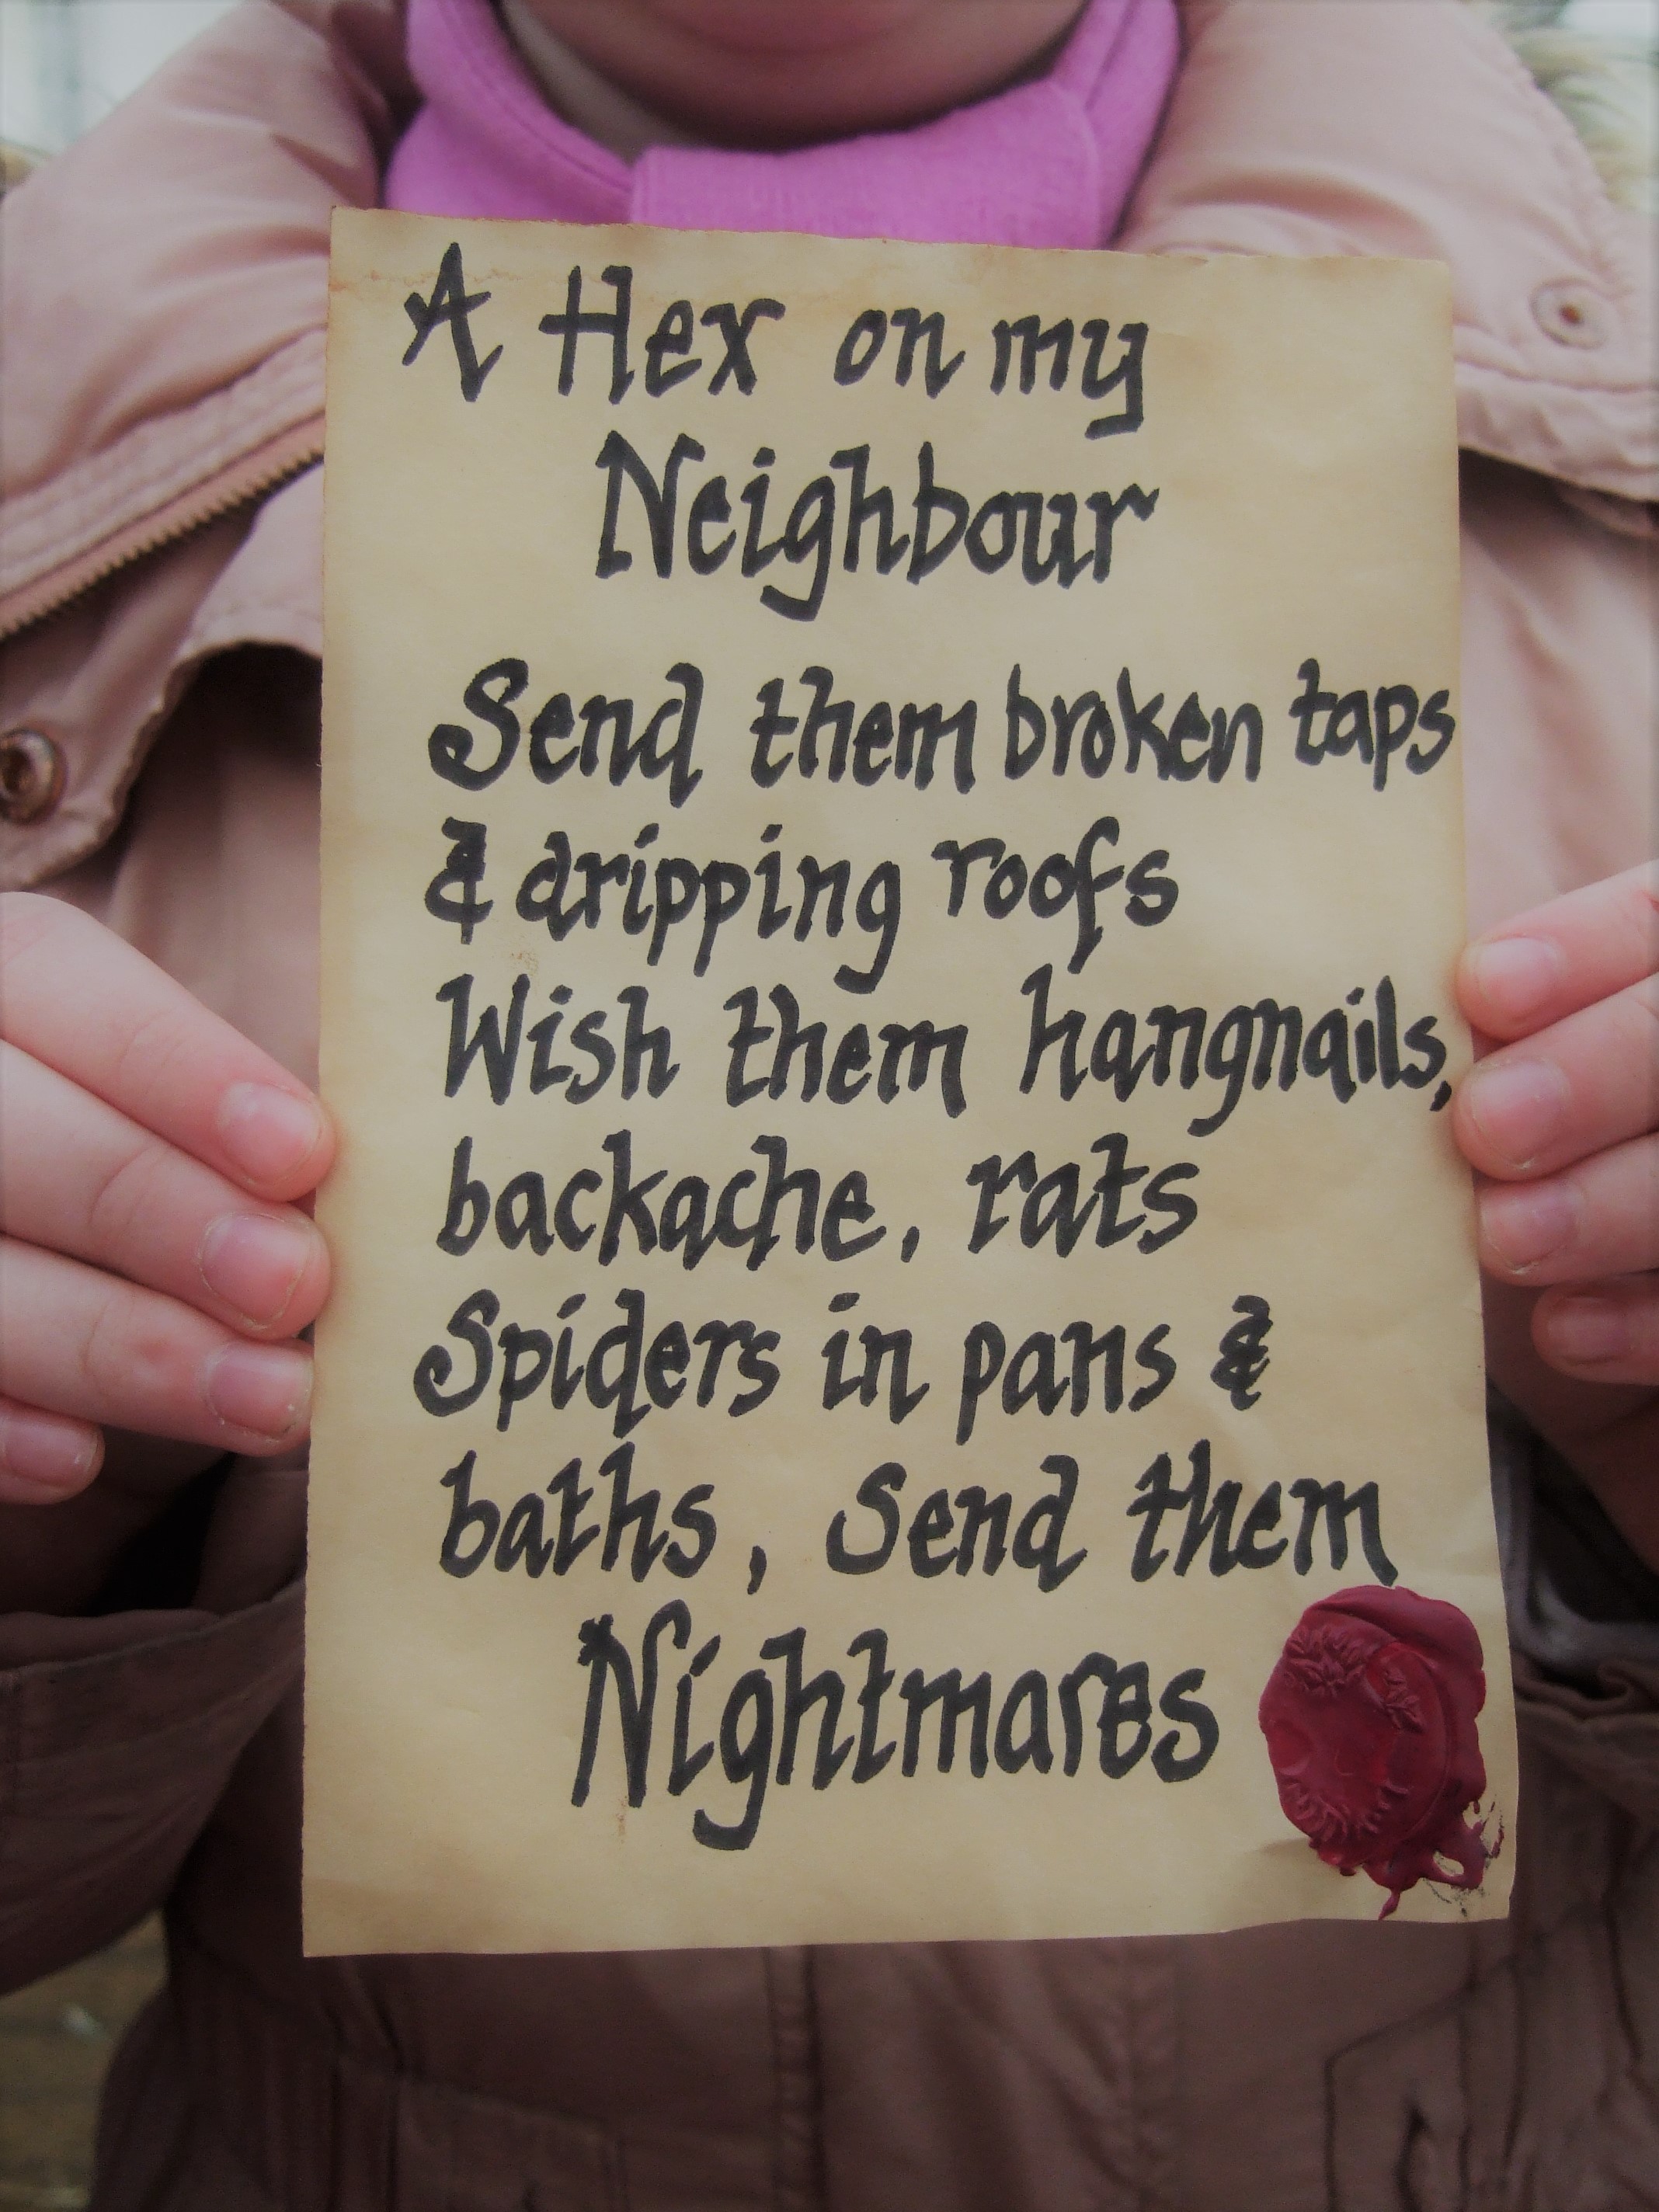 A Hex on my
Neighbour
Send them broken taps
& dripping roofs
Wish them hangnails,
backache, rats
Spiders in pans &
baths, Send them
Nightmares